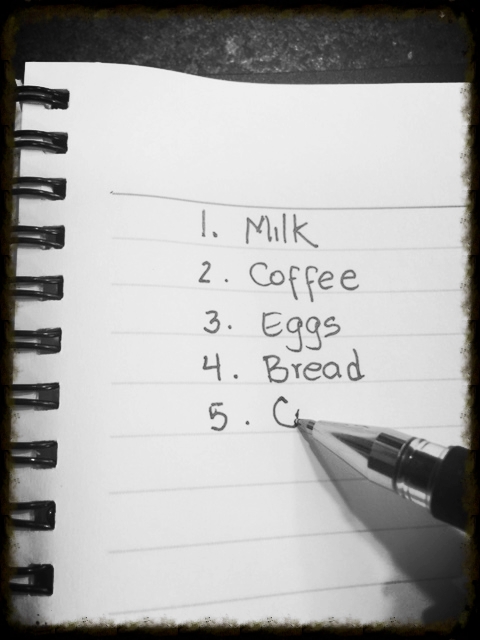 1. Milk
2. Coffee
3. Eggs
4. Bread
5. C